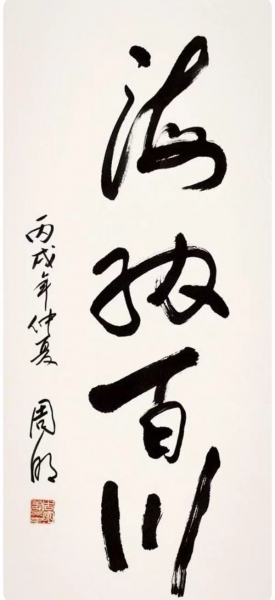 海纳百川
丙戌年仲夏 周明